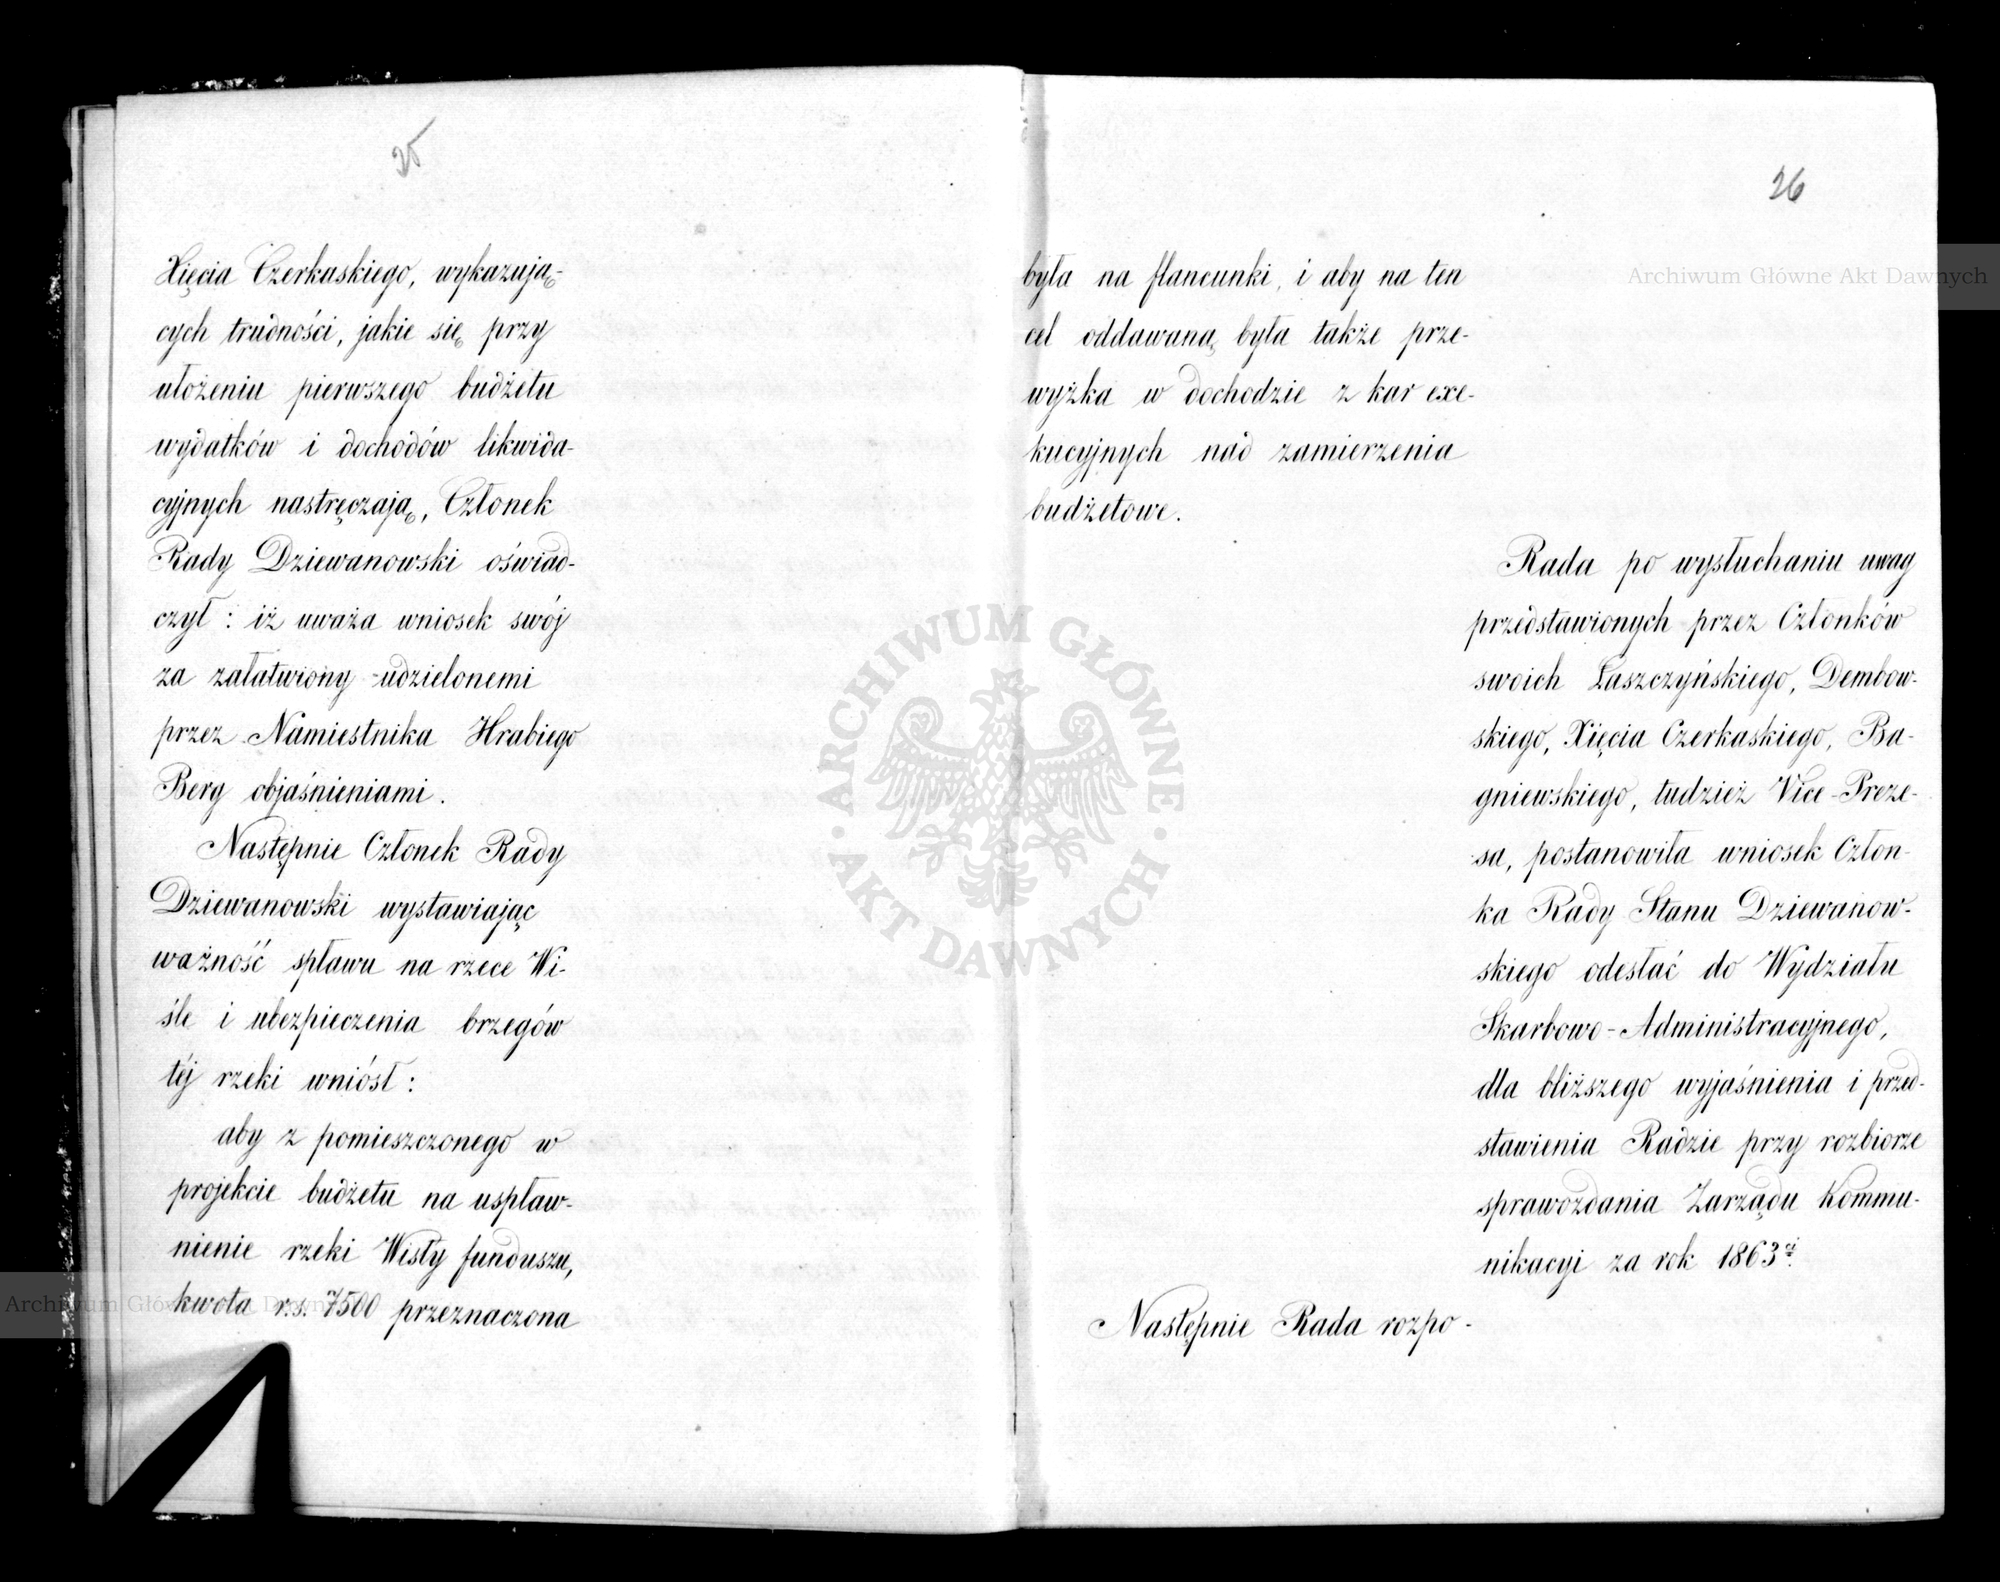 25
Xięcia Czerkaskiego, wykazują-
cych trudności, jakie się przy
ułożeniu pierwszego budżetu
wydatków i dochodów likwida-
cyjnych nastręczają, Członek
Rady Dziewanowski oświad-
czył: iż uważa wniosek swój
za załatwiony udzielonemi
przez Namiestnika Hrabiego
Berg objaśnieniami.
Następnie Członek Rady
Dziewanowski wystawiając
ważność spławu na rzece Wi-
śle i ubezpieczenia brzegów
téj rzeki wniósł:
aby z pomieszczonego w
projekcie budżetu na uspław-
nienie rzeki Wisły funduszu,
kwota r.s. 7500 przeznaczona
26
była na flancunki, i aby na ten
cel oddawaną była także prze-
wyżka w dochodzie z kar exe-
kucyjnych nad zamierzenia
budżetowe.
Rada po wysłuchaniu uwag
przedstawionych przez Członków
swoich Łaszczyńskiego, Dembow-
skiego, Xięcia Czerkaskiego, Ba-
gniewskiego, tudzież Vice-Preze-
sa, postanowiła wniosek Człon-
ka Rady Stanu Dziewanow-
skiego odesłać do Wydziału
Skarbowo-Administracyjnego,
dla bliższego wyjaśnienia i przed-
stawienia Radzie przy rozbiorze
sprawozdania Zarządu Kommu-
nikacyi za rok 1863ci.
Następnie Rada rozpo-
Archiwum Główne Akt Dawnych
Archiwum Główne Akt Dawnych
ARCHIWUM GŁÓWNE
AKT DAWNYCH